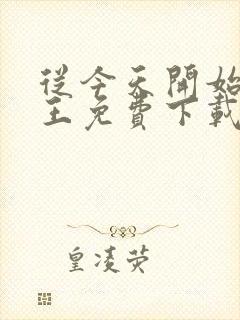 從今天開始
王免費下載
皇凌荧